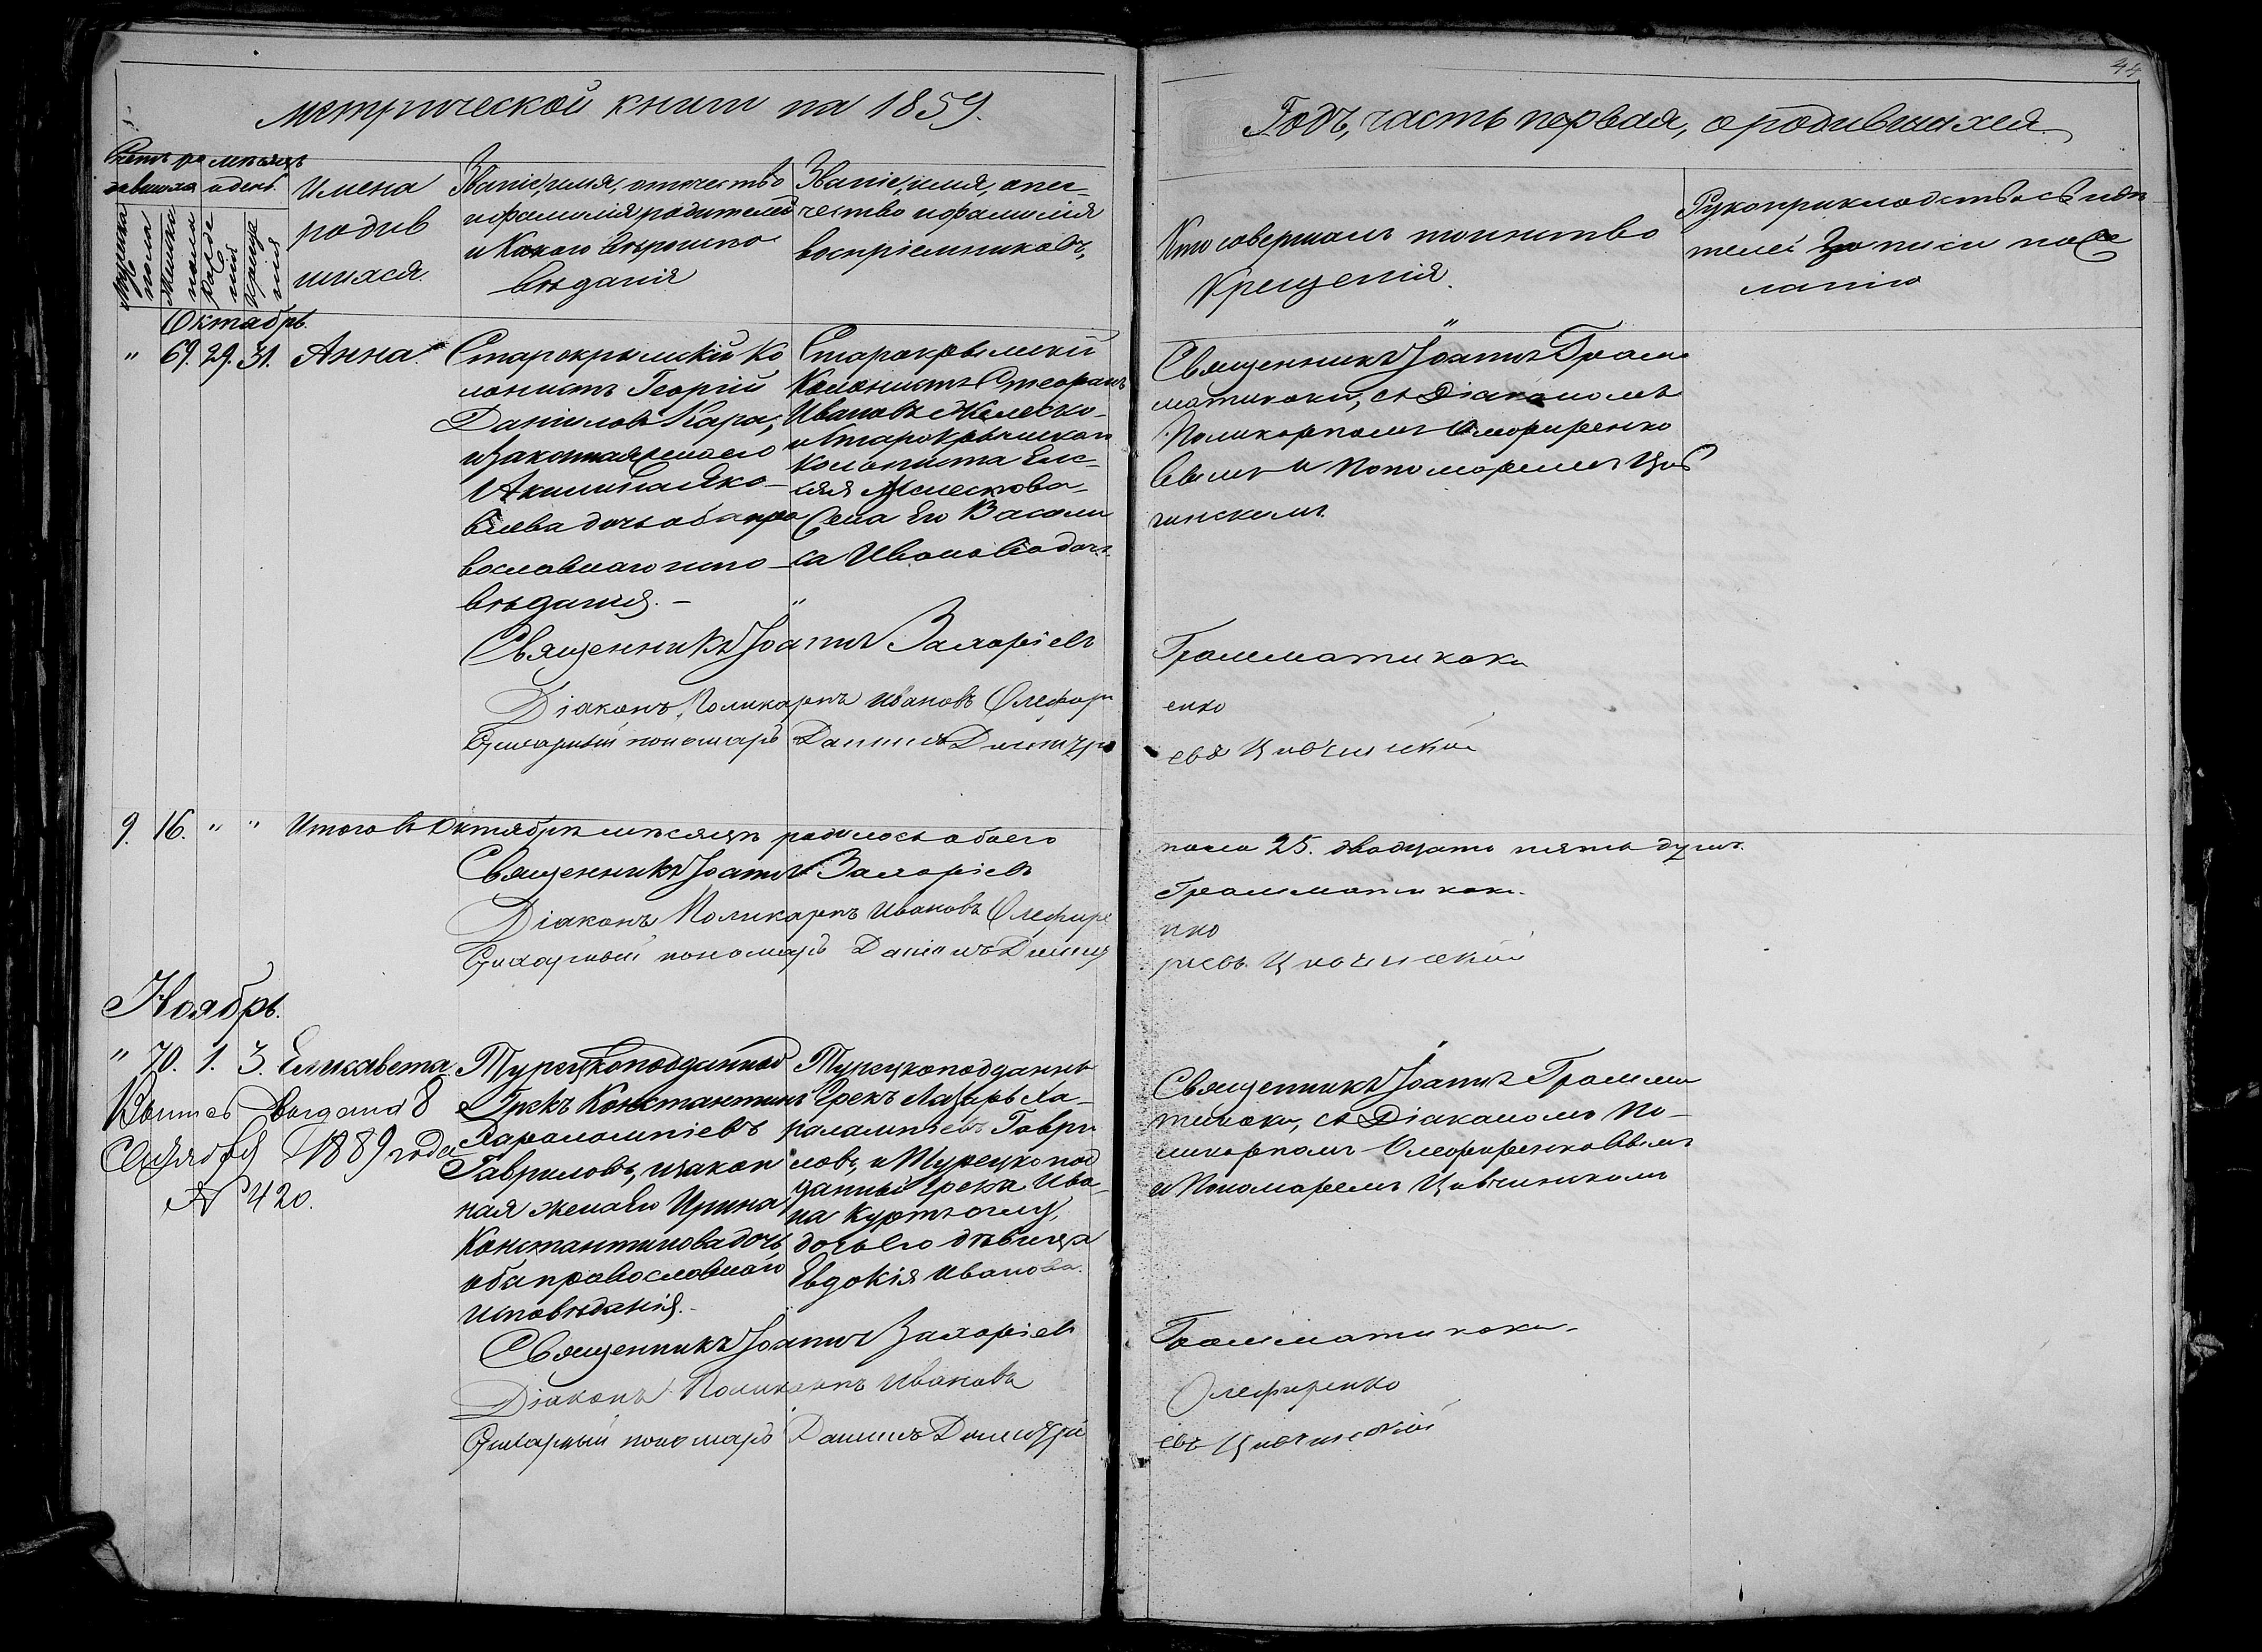 44
Метрической книги на 1859.
Годъ, часть первая, о родившихся
Счетъ ро
дившихся
мѣсяцъ
и день.
Мужеска
пола
Женска
пола
рожде
нія
крище
нія
Имена
родив
шихся.
Званіе, имя, отечество
и фамилія родителей
и Какого вѣроиспо
вѣданія
Званіе, имя, оте-
чество и фамилія
воспріемниковъ,
Кто совершалъ таинство
Крещенія.
Рукоприкладство свидѣ
телей записи по же
ланію
Октябрь.
" 69. 29. 31. Анна
Старокрымскій Ко
лонистъ Георгій
Даніиловъ Кара,
и законная его
Акилина Яко-
влева дочь оба пра
вославнаго испо-
вѣданія.-
Старокрымскій
Колонистъ Стефанъ
Ивановъ
и Старокрымскаго
Колониста
Его Васили
са Иванова дочь.
Священникъ Іоаннъ Грам
матикаки, съ Діакономъ
Поликарпомъ Олефиренко
вымъ и Пономаремъ Цов
чинскимъ.
Священникъ Іоаннъ Захаріевъ Грамматикаки
Діаконъ Поликарпъ Ивановъ Олефиренко
Стихарный пономарь Даніилъ Дмитріевъ Цовчинскій
9. 16. " " Итого въ Октябрѣ мѣсяцѣ родилось обоего пола 25. двадцать пять душъ.
Священникъ Іоаннъ Захаріевъ Грамматикаки.
Діаконъ Поликарпъ Ивановъ Олефиренко
Стихарный пономарь Даніилъ Дмитріевъ Цовчинскій
Ноябрь.
" 70. 1. 3. Елисавета.
выдана 8
1889 года
№ 420.
Турецкоподданной
Грекъ Константинъ
Харалампіевъ
Гавриловъ, и закон
ная жена его Ирина
Константинова дочь
оба православнаго
Исповѣданія.-
Турецкоподданн
Грекъ Лазарь Ха-
ралампіевъ Гаври
ловъ, и Турецкопод
данный Грека Ива-
на
дочь его дѣвица
Евдокія Иванова.
Священникъ Іоаннъ Грамма
тикаки, съ Діакономъ По-
ликарпомъ Олефиренковымъ
и Пономаремъ Цовчинскимъ
Священникъ Іоаннъ Захаріевъ Грамматикаки-
Діаконъ Поликарпъ Ивановъ Олефиренко
Стихарный пономарь Даніилъ Дмитріевъ Цовчинскій